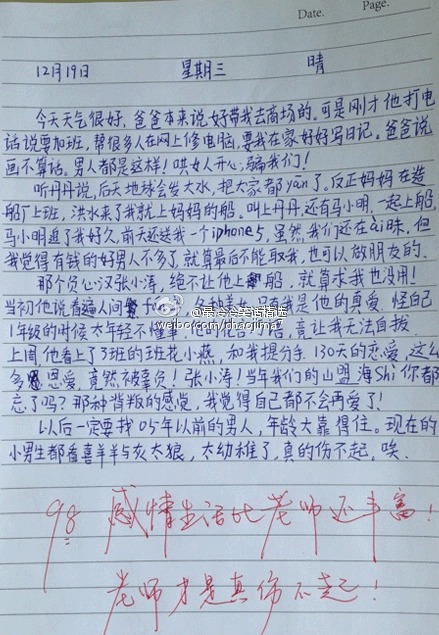 Date.
Page.
12月19日 星期三 晴
今天天气很好,爸爸本来说好带我去商场的。可是刚才他打电
话说要加班,帮很多人在网上修电脑,要我在家好好写日记。爸爸说
画不算话。男人都是这样!哄女人开心,骗我们!
听丹丹说,后天地球会发大水,把大家都yān了。反正妈妈在造
船厂上班,洪水来了我就上妈妈的船。叫上丹丹,还有马小明,一起上船,
马小明追了我好久,前天还送我一个iphone5,虽然我们还在ài昧,但
我觉得有钱的好男人不多了,就算最后不能娶我,也可以做朋友的.
那个负心汉张小涛,绝不让他上船,就算求我也没用!
当初他说看遍人间 只有我是他的真爱,怪自己
1年级的时候太年轻不懂事, 竟让我无法自拔
上周他看上了3班的班花小燕,和我提分手,130天的恋爱,这么
多恩爱,竟然被辜负!张小涛!当年我们的山盟海Shi你都
忘了吗?那种背叛的感觉,我觉得自己都不会再爱了!
以后一定要找05年以前的男人,年龄大靠得住。现在的
小男生都看喜羊羊与灰太狼,太幼稚了,真的伤不起,唉.
@最冷冷笑话精选
weibo.com/chaojima7
98 感情生活比老师还丰富!
老师才是真伤不起!